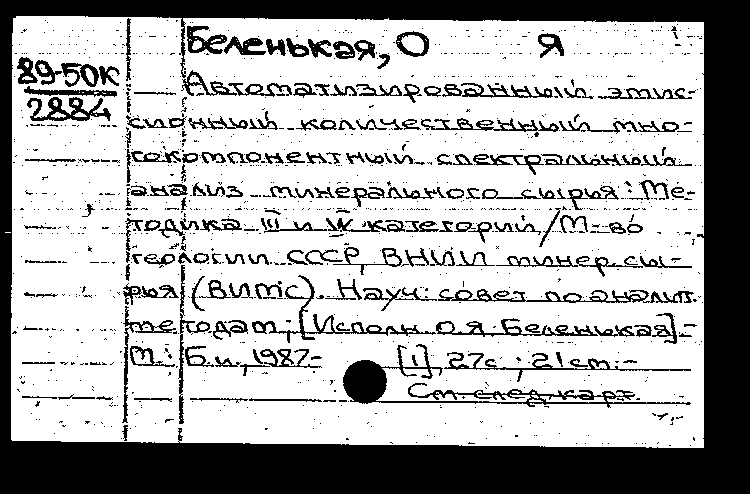 Беленькая, О Я
89-50К
2884
Автоматизированный эмис-
сионный количественный мно-
гокомпонентный спектральный
анализ минерального сырья: Ме-
тодика III и IV категорий/М-во
геологии СССР, ВНИИ минер. сы-
рья (ВИМС). Науч. совет по аналит.
методам; [Исполн. О.Я. Беленькая].-
М.: Б.и., 1987.-
[1], 27с.; 21см.-
См. след. карт.